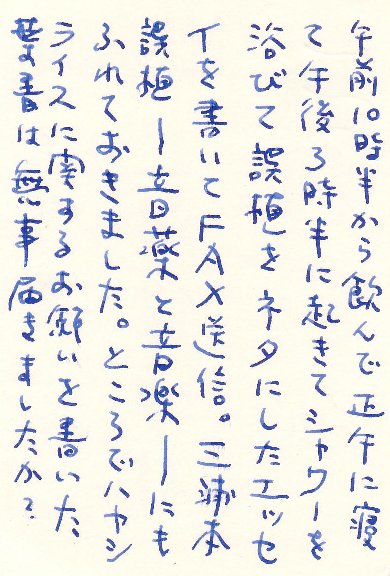 午前10時半から飲んで正午に寝
て午後3時半に起きてシャワーを
浴びて誤植をネタにしたエッセ
イを書いてFAX送信。三浦本
誤植ー音薬と音楽ーにも
ふれておきました。ところでハヤシ
ライスに関するお願いを書いた
葉書は無事届きましたか?